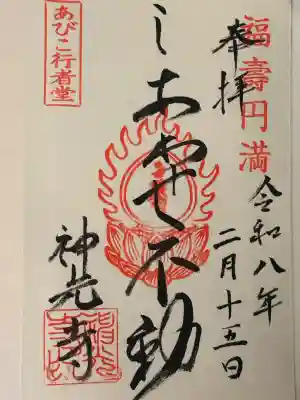 福壽円満
奉拝
令和八年
二月十五日
しあわせ不動
神光寺
あびこ行者堂